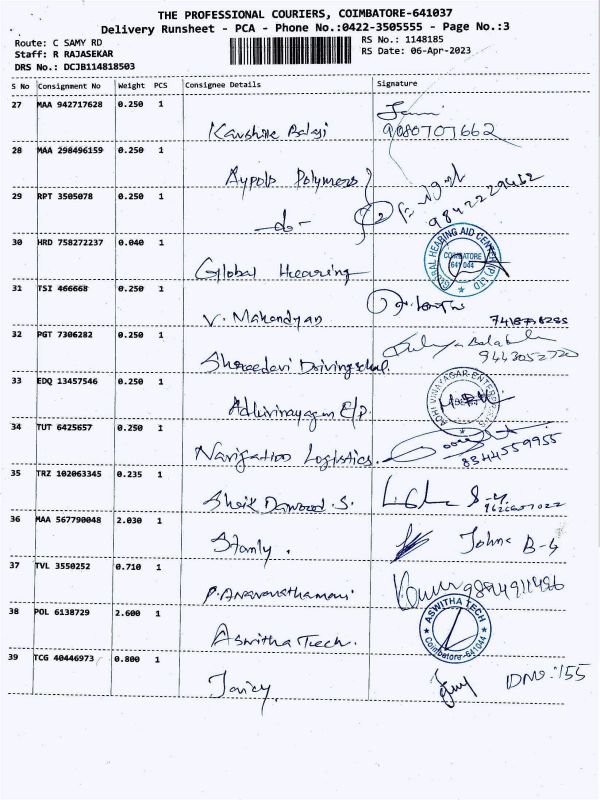 THE PROFESSIONAL COURIERS, COIMBATORE-641037
Delivery Runsheet - PCA - Phone No.:0422-3505555 - Page No.:3
Route: C SAMY RD
RS No.: 1148185
Staff: R RAJASEKAR
RS Date: 06-Apr-2023
DRS No.: DCJB114818503
S No Consignment No Weight PCS Consignee Details Signature
27 MAA 942717628 0.250 1
Kaushik Balaji 9080707662
28 MAA 298496159 0.250 1
Aypols Polymers
29 RPT 3505078 0.250 1
-do- 9842229462
30 HRD 758272237 0.040 1
Global Hearing GLOBAL HEARING AID CENTRE (P) LTD COIMBATORE 641 044
31 TSI 466668 0.250 1
V. Mahendyan
32 PGT 7306282 0.250 1
Shreedevi Driving school. 9443052720
33 EDQ 13457546 0.250 1
Adhivinayagam E/P. ADHI VINAYAGAR ENTERPRISES
34 TUT 6425657 0.250 1
Navigation Logistics. 8344559955
35 TRZ 102063345 0.235 1
Sheik Dawood .S.
36 MAA 567790048 2.030 1
Stanly . Johns B-4
37 TVL 3550252 0.710 1
9894911486
38 POL 6138729 2.600 1
Aswitha Tech. ASWITHA TECH Coimbatore-641044
39 TCG 40446973 0.800 1
DNO:155